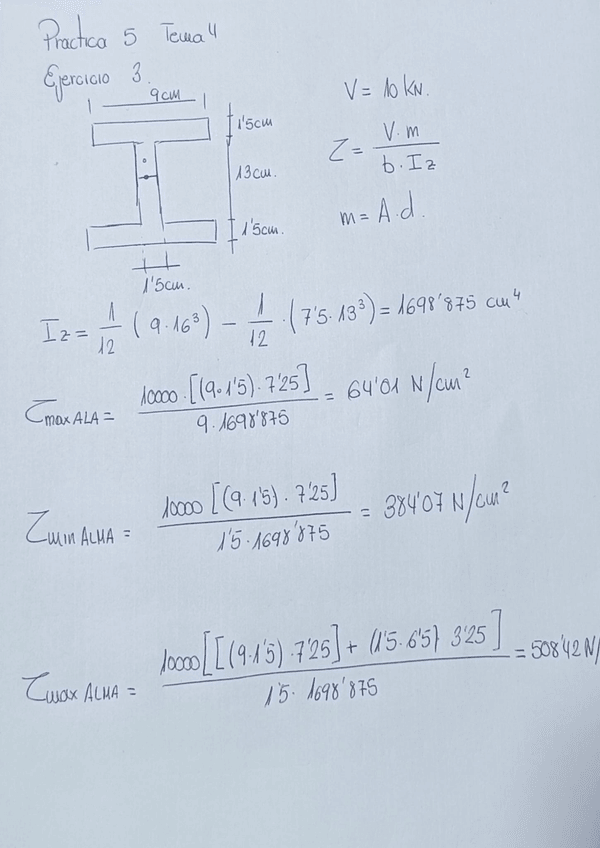 Practica 5 Tema 4
Ejercicio 3.
9cm
V = 10 kN.
1'5cm
τ = V·m / b·Iz
13cm.
m = A·d.
1'5cm.
1'5cm.
Iz = 1/12 (9·16³) - 1/12 · (7'5·13³) = 1698'875 cm⁴
τmax ALA = 10000·[(9·1'5)·7'25] / 9·1698'875 = 64'01 N/cm²
τmin ALMA = 10000 [(9·1'5)·7'25] / 1'5·1698'875 = 384'07 N/cm²
τmax ALMA = 10000 [[(9·1'5)·7'25] + (1'5·6'5) 3'25] / 1'5·1698'875 = 508'42 N/